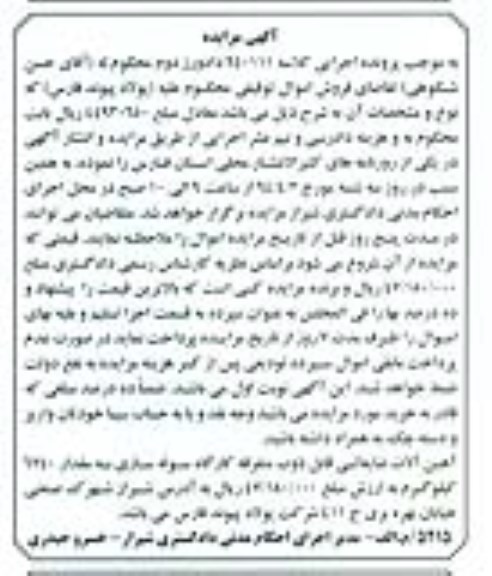 آگهی مزایده
به موجب پرونده اجرایی کلاسه دادورز دوم محکوم له (آقای حسن
شکوهی) تقاضای فروش اموال توقیفی محکوم علیه (پولاد پیوند فارس) که
نوع و مشخصات آن به شرح ذیل می باشد معادل مبلغ ریال بابت
محکوم به و هزینه دادرسی و نیم عشر اجرایی از طریق مزایده و انتشار آگهی
در یکی از روزنامه های کثیرالانتشار محلی استان فارس را نموده، به همین
سبب در روز سه شنبه مورخ از ساعت ۹ الی ۱۰ صبح در محل اجرای
احکام مدنی دادگستری شیراز مزایده برگزار خواهد شد. متقاضیان می توانند
در مدت پنج روز قبل از تاریخ مزایده اموال را ملاحظه نمایند. قیمتی که
مزایده از آن شروع می شود براساس نظریه کارشناس رسمی دادگستری مبلغ
ریال و برنده مزایده کسی است که بالاترین قیمت را پیشنهاد و
ده درصد بها را فی المجلس به عنوان سپرده به قسمت اجرا تسلیم و بقیه بهای
اموال را ظرف مدت روز از تاریخ مزایده پرداخت نماید در صورت عدم
پرداخت مابقی اموال سپرده تودیعی پس از کسر هزینه مزایده به نفع دولت
ضبط خواهد شد. این آگهی نوبت اول می باشد. ضمناً ده درصد مبلغی که
قادر به خرید مورد مزایده می باشید وجه نقد و یا به حساب سیبا خودتان واریز
و دسته چک به همراه داشته باشید.
آهن آلات ضایعاتی قابل ذوب متفرقه کارگاه سوله سازی به مقدار
کیلوگرم به ارزش مبلغ ریال به آدرس شیراز شهرک صنعتی
خیابان بهره وری شرکت پولاد پیوند فارس می باشد.
۵۲۱۵/م.الف - مدیر اجرای احکام مدنی دادگستری شیراز - خسرو حیدری